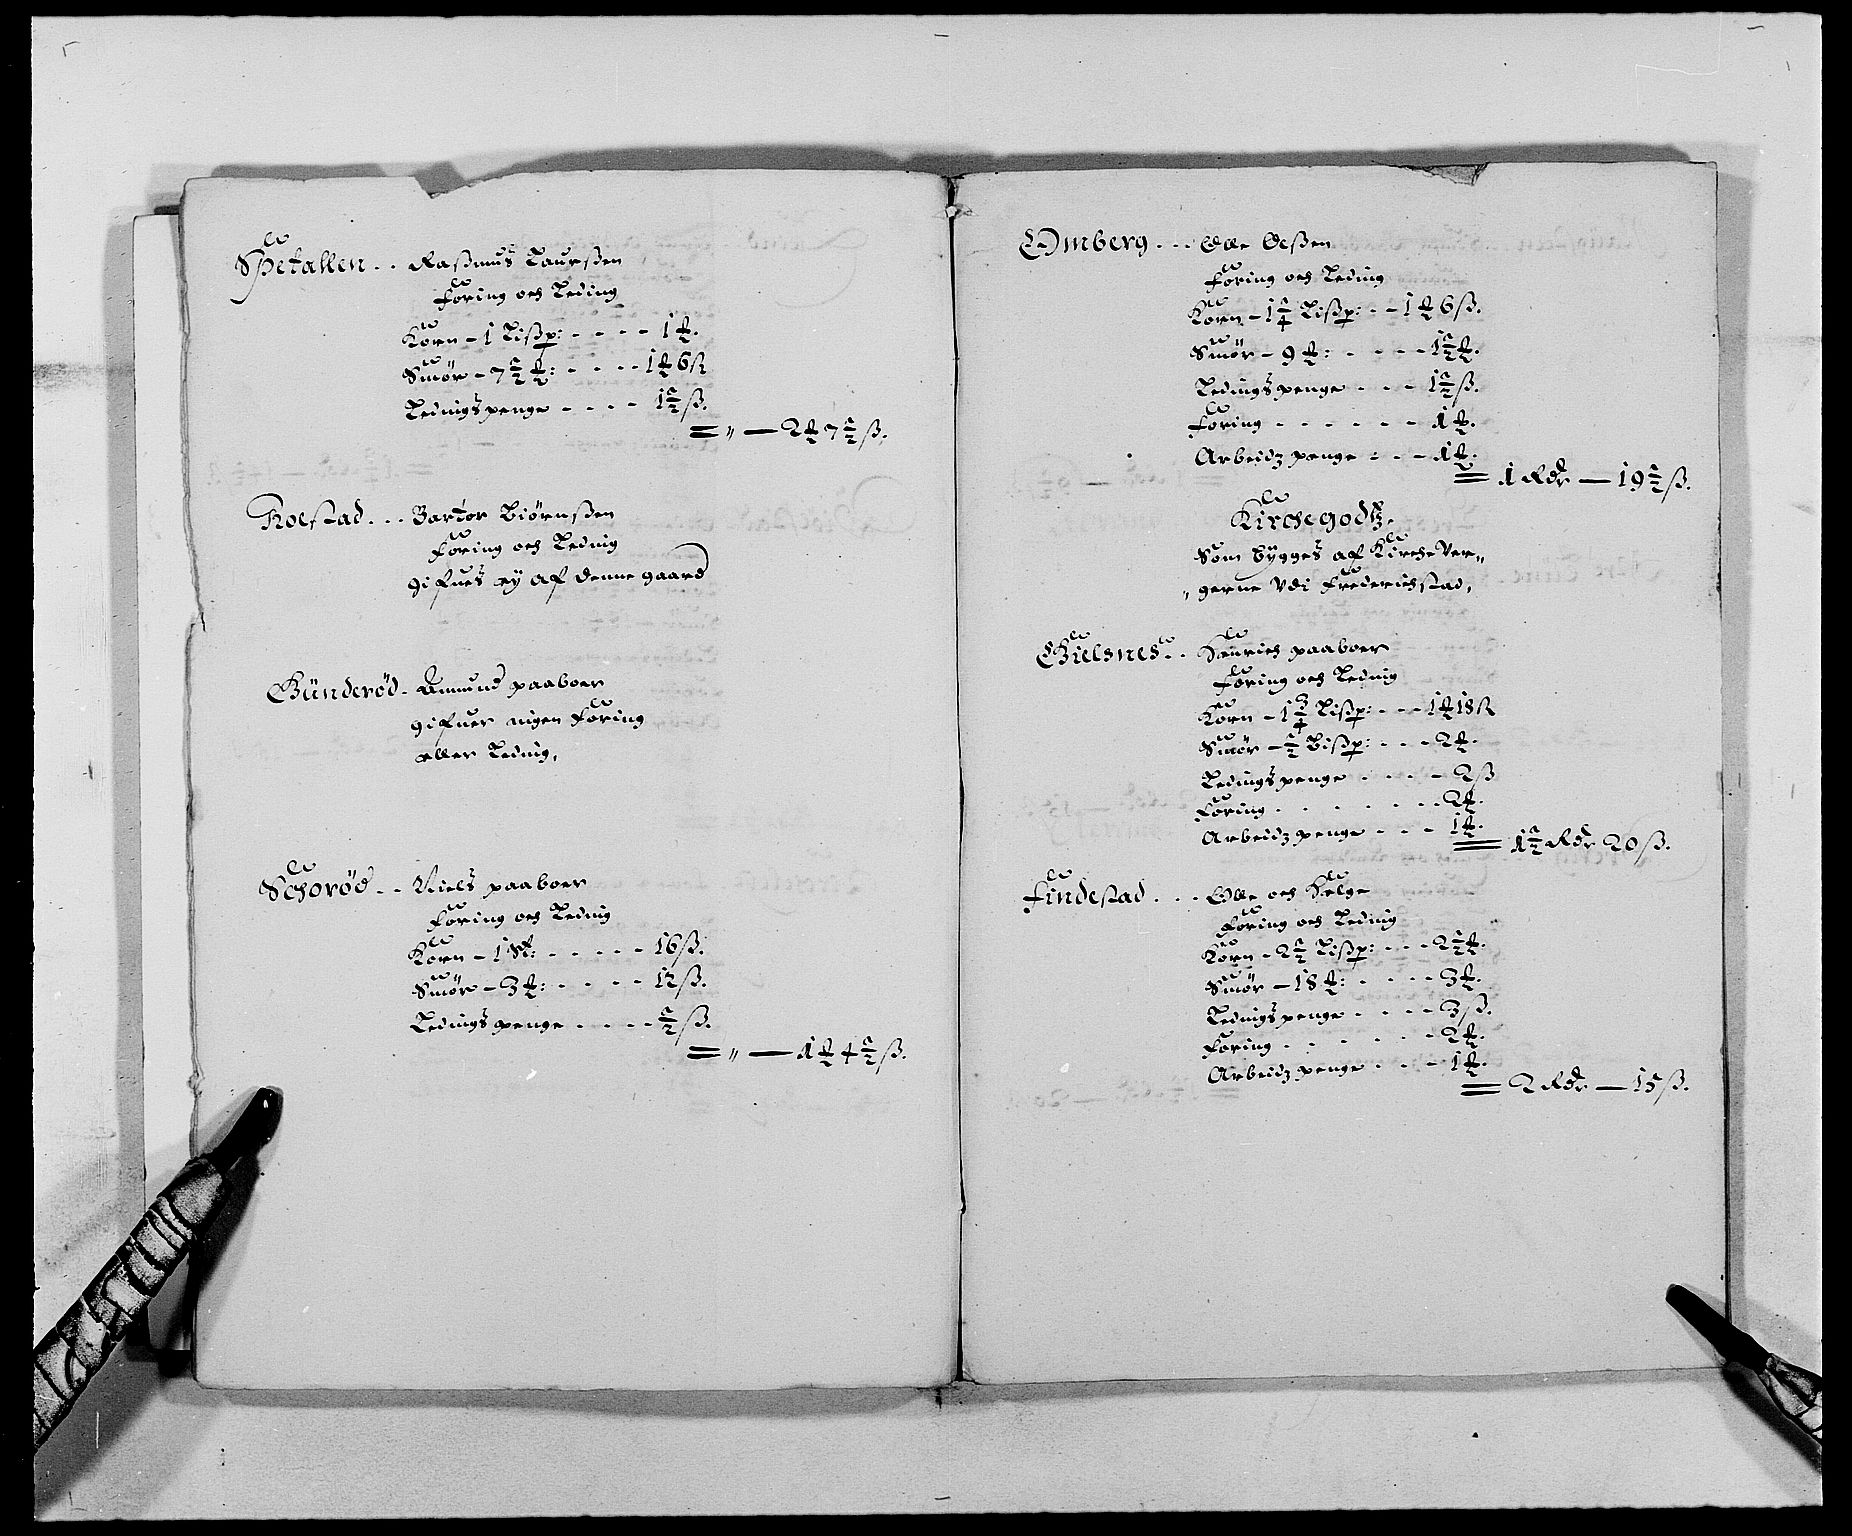 Spetallen - - Rasmus Laurssen
Foring och Leding
Korn - 1 Lissp: - - - - 1 ℔.
Smør - 7 ½ ℔: - - - - 1 ℔ 6 ß
Ledings penge - - - - 1½ ß.
= " — 2 ℔ 7½ ß.
Roestad - - - Biørnssen
Foring och Leding
gifues ey af denne gaard
Bünderöd - Amund paaboer
gifuer ingen Foring
eller Leding.
Schoröd - - Niels paaboer
Foring och Leding
Korn - 1 - - - - - 16 ß.
Smör - 3 ℔: - - - - 12 ß.
Ledings penge - - - - ½ ß.
= " — 1 ℔ 4½ ß.
Omberg - - - Olle Olssen
Foring och Leding
Korn - 1¼ Lissp: - - 1 ℔ 6 ß.
Smør - 9 ℔: - - - - 1½ ℔.
Ledings penge - - - 1½ ß.
Foring - - - - - - 1 ℔.
Arbeidz penge - - - 1 ℔.
= 1 Rdr — 19½ ß.
Kirchegodtz.
Som bygges af Kirche Ver„
„gerne Vdi Frederichstad,
Gielsnes - - Henrich paaboer
Foring och Leding
Korn - 1¾ Lissp: - - - 1 ℔ 18 ß
Smør - ½ Lissp: - - - 2 ℔.
Ledings penge - - - - 2 ß
Foring - - - - - - - 2 ℔.
Arbeidz penge - - - 1 ℔.
= 1½ Rdr 20 ß.
Findestad - - - Olle och Helge
Foring och Leding
Korn - 2½ Lissp: - - - 2½ ℔.
Smør - 18 ℔: - - - - 3 ℔.
Ledings penge - - - - 3 ß.
Foring - - - - - - 2 ℔.
Arbeidz penge - - - - 1 ℔.
= 2 Rdr — 15 ß.